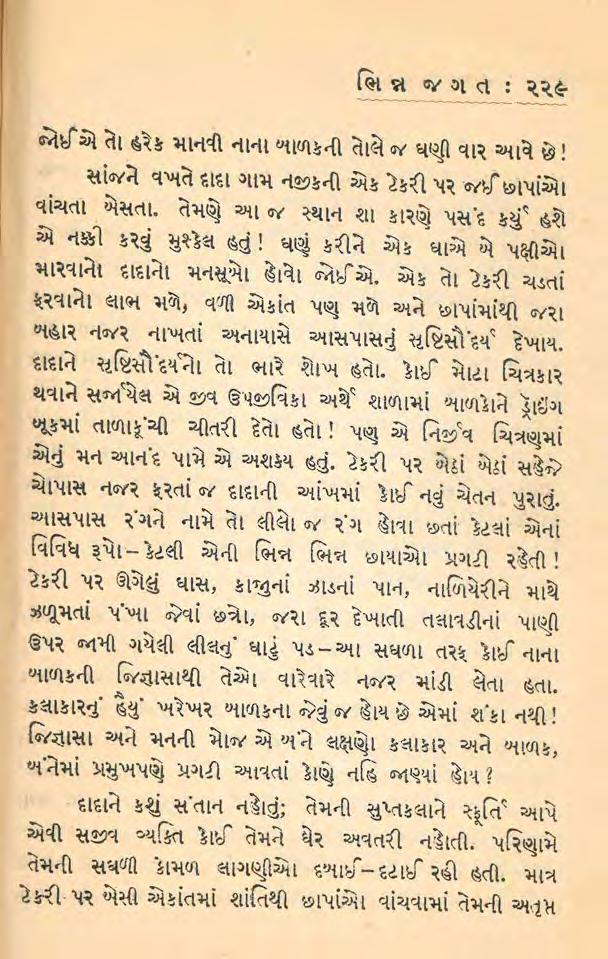 ભિન્ન જગત : ૨૨૯
જોઈ એ તો હરેક માનવી નાના બાળકની તોલે જ ઘણી વાર આવે છે!
સાંજને વખતે દાદા ગામ નજીકની એક ટેકરી પર જઈ છાપાંઓ
વાંચતા બેસતા. તેમણે આ જ સ્થાન શા કારણે પસંદ કર્યું હશે
એ નક્કી કરવું મુશ્કેલ હતું! ઘણું કરીને એક ઘાએ બે પક્ષીઓ
મારવાનો દાદાનો મનસૂબો હોવો જોઈએ. એક તો ટેકરી ચડતાં
ફરવાનો લાભ મળે, વળી એકાંત પણ મળે અને છાપાંમાંથી જરા
બહાર નજર નાખતાં અનાયાસે આસપાસનું સૃષ્ટિસૌંદર્ય દેખાય.
દાદાને સૃષ્ટિસૌંદર્યનો તો ભારે શોખ હતો. કોઈ મોટા ચિત્રકાર
થવાને સર્જાયેલ એ જીવ ઉપજીવિકા અર્થે શાળામાં બાળકોને ડ્રૉઇંગ
બૂકમાં તાળાકૂંચી ચીતરી દેતો હતો! પણ એ નિર્જીવ ચિત્રણમાં
એનું મન આનંદ પામે એ અશક્ય હતું. ટેકરી પર બેઠાં બેઠાં સહેજે
ચોપાસ નજર ફરતાં જ દાદાની આંખમાં કોઈ નવું ચેતન પુરાતું.
આસપાસ રંગને નામે તો લીલો જ રંગ હોવા છતાં કેટલાં એનાં
વિવિધ રૂપો–કેટલી એની ભિન્ન ભિન્ન છાયાઓ પ્રગટી રહેતી!
ટેકરી પર ઊગેલું ઘાસ, કાજુનાં ઝાડનાં પાન, નાળિયેરીને માથે
ઝળૂમતાં પંખા જેવાં છત્રો, જરા દૂર દેખાતી તલાવડીનાં પાણી
ઉપર જામી ગયેલી લીલનું ઘાટું પડ–આ સઘળા તરફ કોઈ નાના
બાળકની જિજ્ઞાસાથી તેઓ વારેવારે નજર માંડી લેતા હતા.
કલાકારનું હૈયું ખરેખર બાળકના જેવું જ હોય છે એમાં શંકા નથી!
જિજ્ઞાસા અને મનની મોજ એ બંને લક્ષણો કલાકાર અને બાળક,
બંનેમાં પ્રમુખપણે પ્રગટી આવતાં કોણે નહિ જાણ્યાં હોય?
દાદાને કશું સંતાન નહોતું; તેમની સુપ્તકલાને સ્ફૂર્તિ આપે
એવી સજીવ વ્યક્તિ કોઈ તેમને ઘેર અવતરી નહોતી. પરિણામે
તેમની સઘળી કોમળ લાગણીઓ દબાઈ–દટાઈ રહી હતી. માત્ર
ટેકરી પર બેસી એકાંતમાં શાંતિથી છાપાંઓ વાંચવામાં તેમની અતૃપ્ત